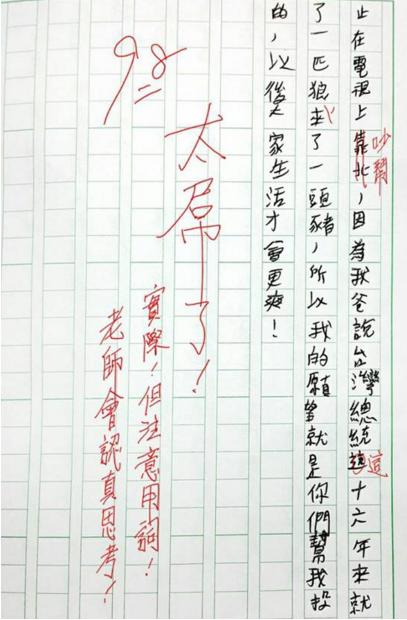 吵鬧
這
止在電視上靠北,因為我爸說台灣總統這十六年來就
了一匹狼走了一頭豬,所以我的願望就是你們幫我投
的,以後大家生活才會更爽!
98
太屌了!
實際!但注意用詞!
老師會認真思考!